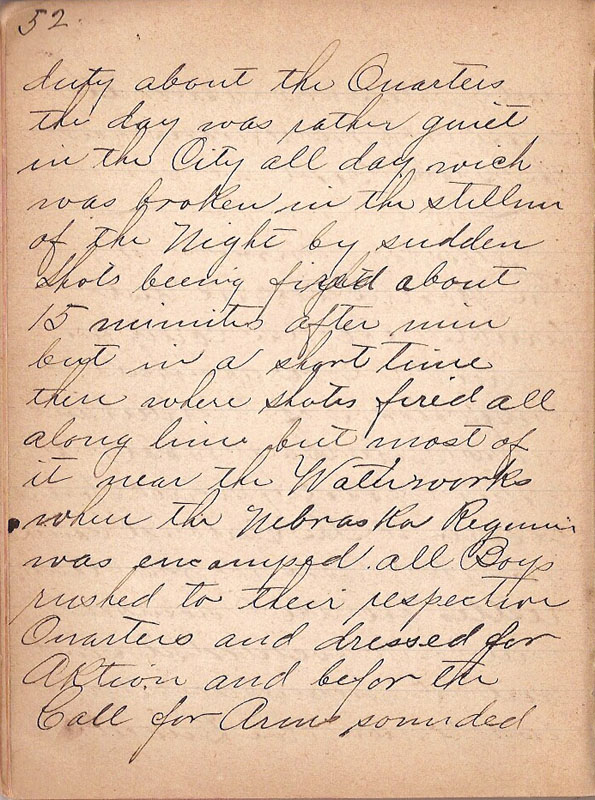 52.
duty about the Quarters
the day was rather quiet
in the City all day wich
was broken in the stillnes
of the Night by sudden
shots beeing fired about
15 minuits after nin
but in a short time
ther where shots fired all
along line but most of
it near the Watterworks
wher the Nebraska Regimin
was encamped. all Boys
rushed to their respective
Quarters and dressed for
Aktion and befor the
Call for Arms sounded